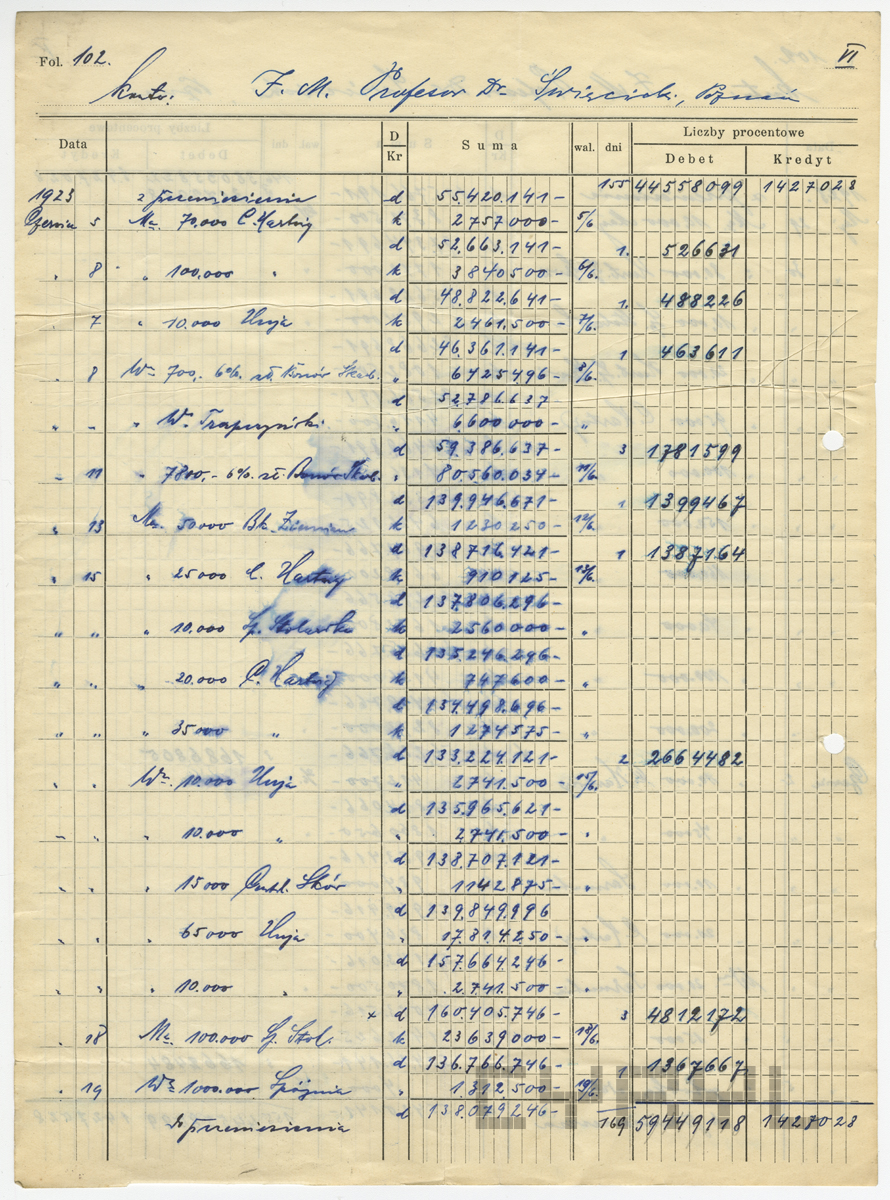 Fol. 102. VI
Konto: J. M. Profesor Dr. Święcicki, Poznań
Data D Kr Suma wal. dni Liczby procentowe
Debet Kredyt
1923 z przeniesienia d 55.420.141- 155 44558099 1427028
Czerwiec 5 Ma. 70.000 C. Hartwig k 2757000- 5/6.
d 52.663.141- 1. 526631
" 8 " 100.000 " k 3840500- 6/6.
d 48.822.641- 1. 488226
" 7 " 10.000 Unja k 2461.500- 7/6.
d 46.361.141- 1 463611
" 8 Wn 700,- 6% zł. " 6425496- 8/6.
d 52.786.637
" " " Wn Trąpczyński " 6600000- "
d 59.386.637- 3 1781599
" 11 " 7800,- 6% zł. " 80.560.034- 11/6.
d 139.946.671- 1 1399467
" 13 Ma. 50000 Bk. Ziemian k 1230250- 12/6.
d 138.716.421- 1 1387164
" 15 " 25000 C. Hartwig k 910125- 13/6.
d 137.806.296-
" " " 10.000 Sp. Stolarska k 2560000- "
d 135.246.296-
" " " 20.000 C. Hartwig k 747600- "
d 134.498.696-
" " " 35000 " k 1274575- "
d 133.224.121- 2 2664482
" " Wn. 10.000 Unja " 2741.500- 15/6.
d 135.965.621-
" " " 10.000 " " 2.741.500- "
d 138.707.121-
" " " 15000 Centl. Skór " 1142875- "
d 139.849.996
" " " 65000 Unja " 17.814.250- "
d 157.664.246-
" " " 10.000 " " 2.741.500- "
x d 160.405.746- 3 4812172
" 18 Ma. 100.000 Sp. Stol. k 23639000- 18/6.
d 136.766.746- 1 1367667
" 19 Wn 1000.000 Spójnia " 1.312.500- 19/6.
d 138.079.246-
do przeniesienia 169 59449118 1427028